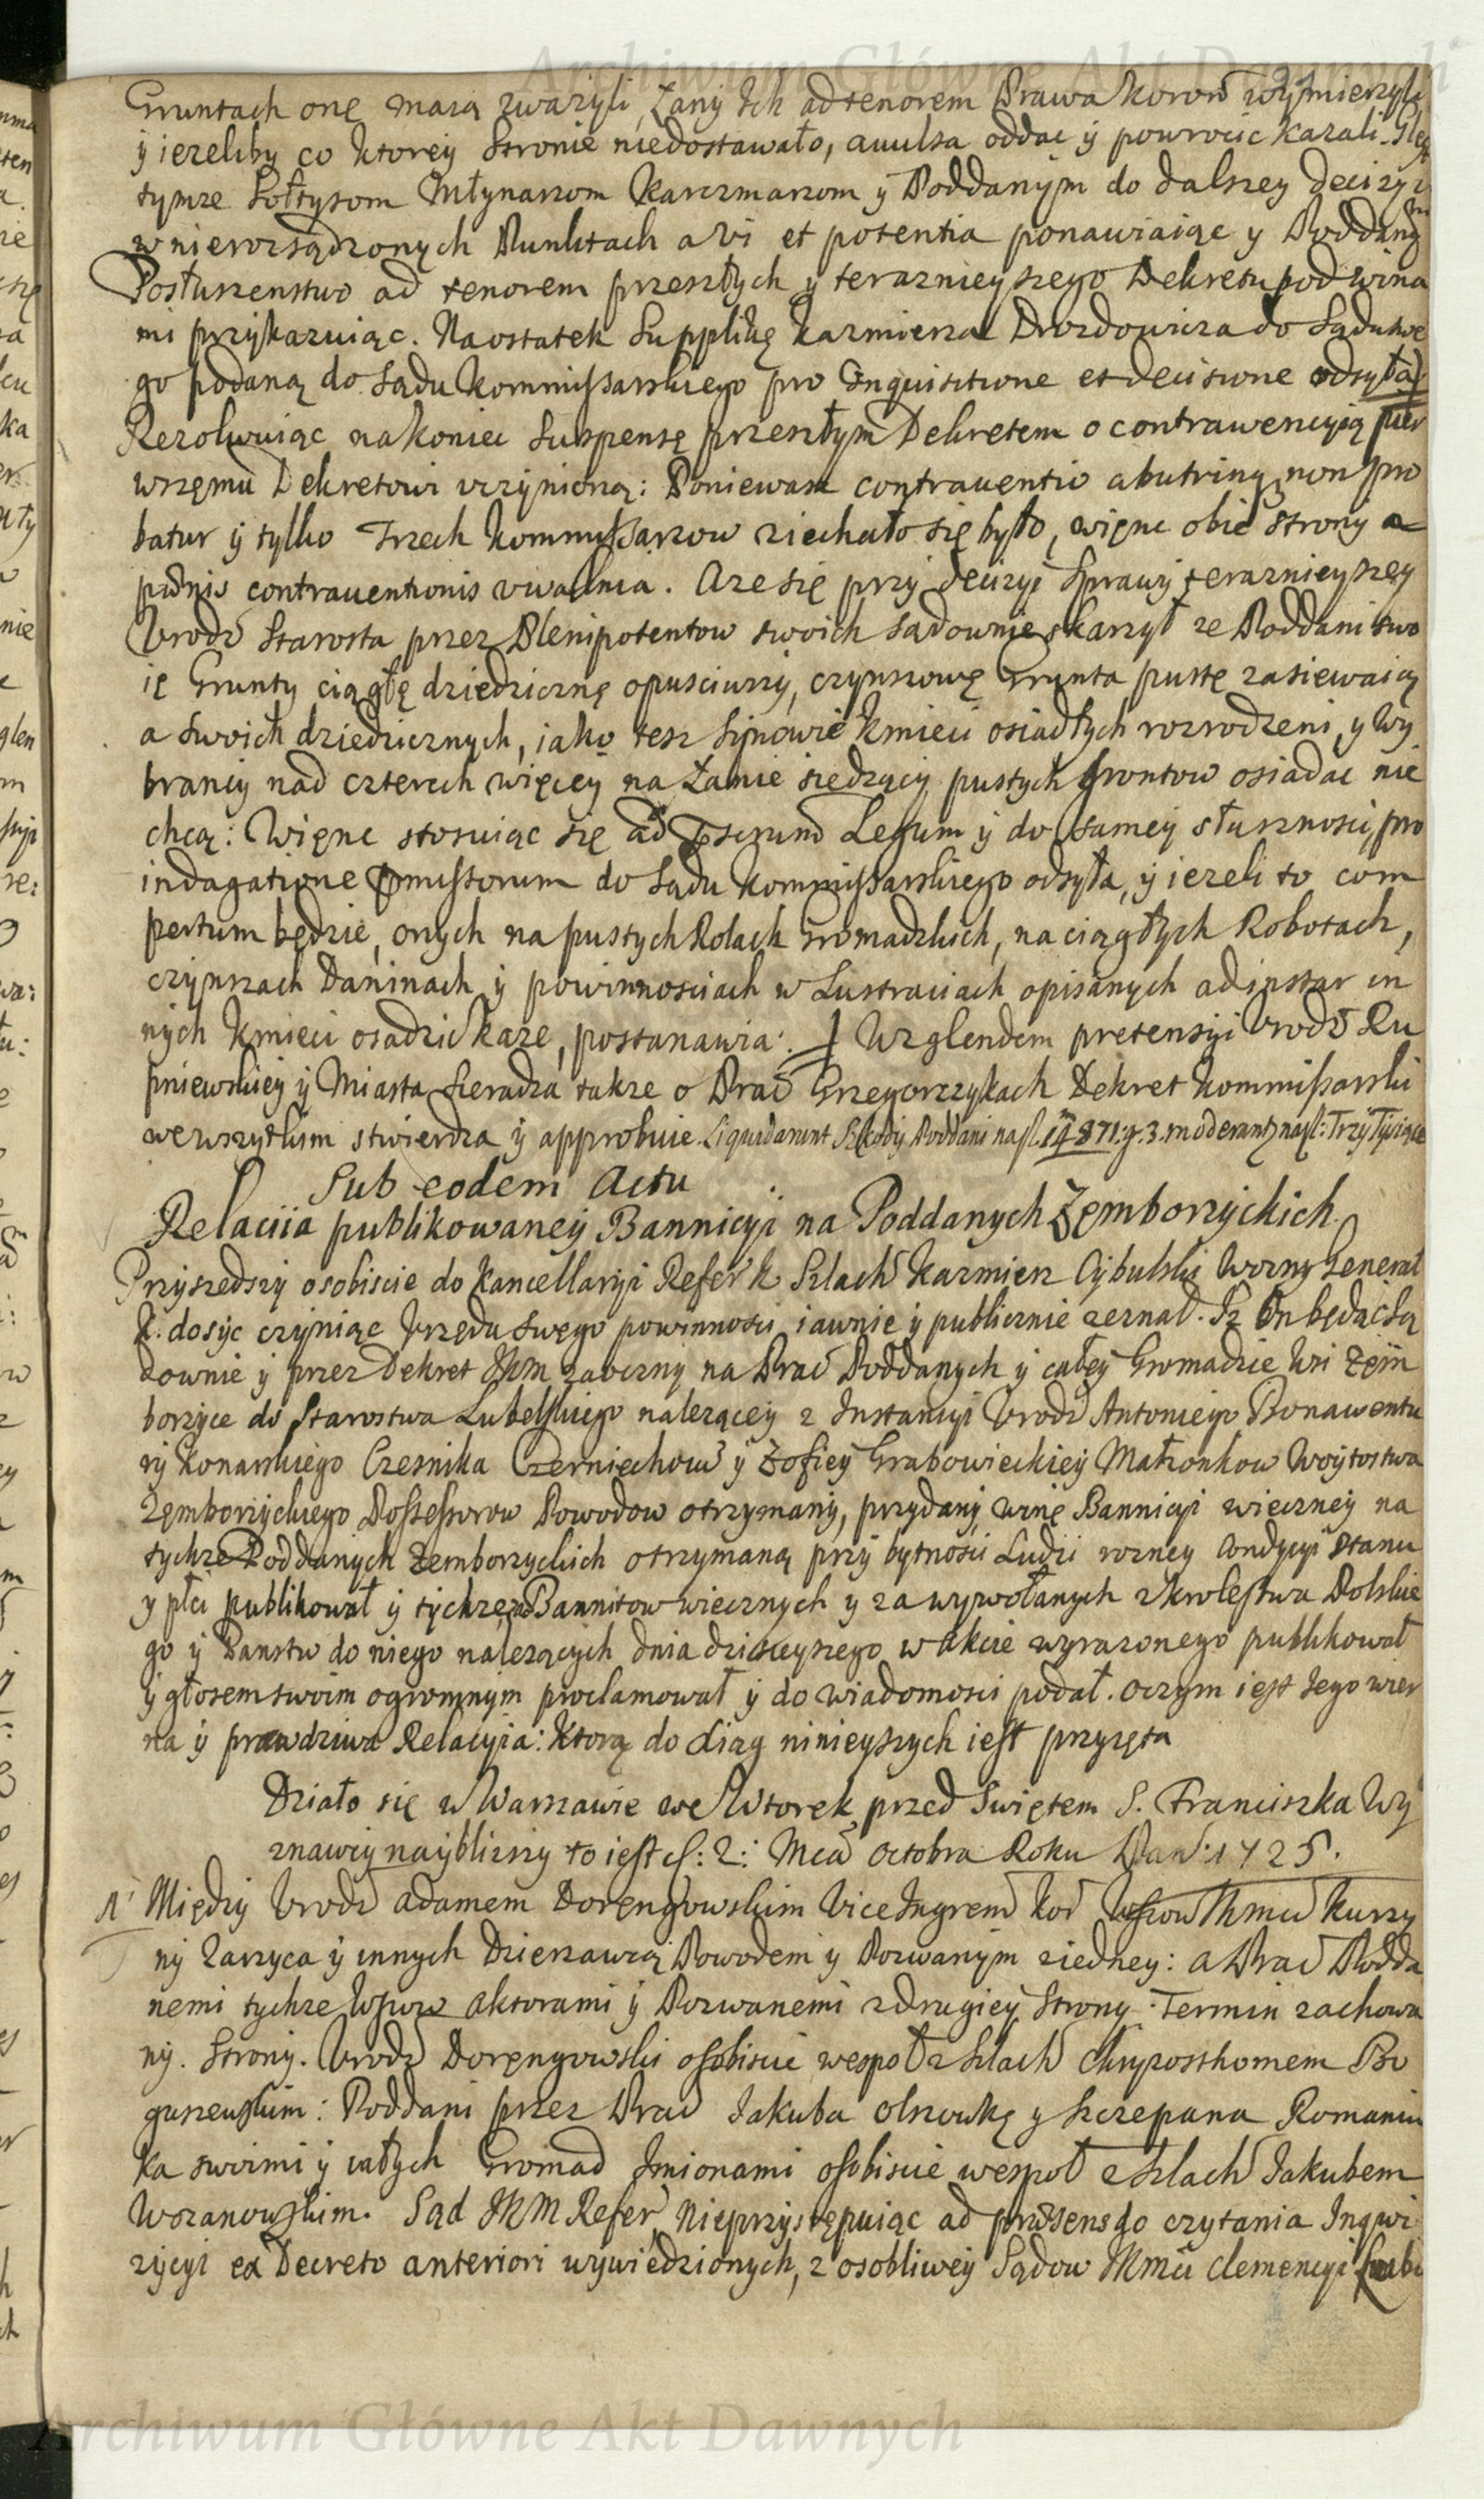 Archiwum Główne Akt Dawnych
Gruntach one maią zważyli, Łany Ich ad tenorem Prawa koron wymierzyli
y ieżeliby co ktorey Stronie niedostawało, auulsa oddać y powrocić kazali
tymże Sołtysom Młynarzom Karczmarzom y Poddanym do dalszey decizyi
w nierozsądzonych Punktach a vi et potentia ponawiaiąc y Poddanym
Posłuszenstwo ad tenorem przeszłych y teraznieyszego Dekretu pod wina
mi przykazuiąc. Na ostatek Supplikę Kazmierza Drozdowicza do Sądu swe
go podaną do Sądu Kommissarskiego pro inquisitione et decisione odsyła
Rezolwuiąc na koniec Suspensę przeszłym Dekretem o contrawencyią pier
wszemu Dekretowi uczynioną: Poniewasz contrauentio ab utrinq non pro
batur y tylko Trzech Kommissarzow ziechało się było, więnc obie strony a
pœnis contrauentionis uwalnia. A że się przy decizyi Sprawy teraznieyszey
Urodz Starosta przez Plenipotentow swoich sądownie skarzył ze Poddani swo
ie Grunty ciągłe dziedziczne opusciwszy, czynszowe Grunta puste zasiewaią
a swoich dziedzicznych, iako tesz Synowie Kmieci osiadłych rozrodzeni, y Wy
brancy nad czterech więcey na Łanie siedzący pustych Grontow osiadac nie
chcą: Więnc stosuiąc się ad Legum y do samey słusznosci, pro
indagatione pmissorum do Sądu Kommissarskiego odsyła, y ieżeli to com
pertum będzie, onych na pustych Rolach Gromadzkich, na ciągłych Robotach,
czynszach Daninach y powinnosciach w Lustraciach opisanych ad instar in
nych Kmieci osadzic każe, postanawia. Wzglendem pretensyi Urodz Ru
pniewskiey y Miasta Sieradza także o Prac Grzegorczykach Dekret Kommissarski
we wszytkim stwierdza y approbuie. Liquidarunt Szkody Poddani na fl. 19871: g. 3. moderant na fl: Trzy Tysiące
Sub eodem Actu
Relaciia publikowaney Bannicyi na Poddanych Zemborzyckich
Przyszedszy osobiscie do Kancellaryi Refer K Szlach Kazmierz Cybulski Wozny Generał
K. dosyc czyniąc Urzędu swego powinnosci, iawnie y publicznie zeznał. Iz On będąc Są
downie y przez Dekret JKM zaoczny na Prac Poddanych y całey Gromadzie wsi Zem
borzyce do Starostwa Lubelskiego nalezącey z Instancyi Urodz Antoniego Bonawentu
ry Konarskiego Czesnika Czerniechow y Zofiey Grabowieckiey Małzonkow Woytostwa
Zemborzyckiego Possessorow Powodow otrzymany, przydany winę Bannicyi wieczney na
tychże Poddanych Zemborzyckich otrzymaną przy bytnosci Ludzi rozney Condycyi stanu
y płci publikował y tychże za Bannitow wiecznych y za wywołanych z Krolestwa Polskie
go y Panstw do niego nalezących dnia dzisieyszego w akcie wyrazonego publikował
y głosem swoim ogromnym proclamował y do wiadomosci podał. O czym iest Jego wier
na y prawdziwa Relacyia: Ktorą do Xiąg ninieyszych iest przyięta
Działo się w Warszawie we Wtorek przed Swiętem S. Franciszka Wy
znawcy nayblizszy to iest d: 2: Mca Octobra Roku Pan: 1725.
Między Urodz Adamem Dorengowskim Vice Ingrem Kor Wsiow JKmci Kurzy
ny Zarzyca y innych Dzierzawcą Powodem y Pozwanym z iedney: a Prac Podda
nemi tychże Wsiow aktorami y Pozwanemi z drugiey Strony. Termin zachowa
ny. Strony. Urodz Dorengowski osobiscie wespoł z Szlach Chryzosthomem Bo
guszewskim: Poddani przez Prac Jakuba Olszowkę y Szczepana Romaniu
ka swoimi y całych Gromad Jmionami osobiscie wespoł z Szlach Jakubem
Wozanowskim. Sąd JKM Refer, Nieprzystępuiąc ad præsens do czytania Inqwi
zycyi ex Decreto anteriori wywiedzionych, z osobliwey Sądow JKmci Clemencyi
Archiwum Główne Akt Dawnych